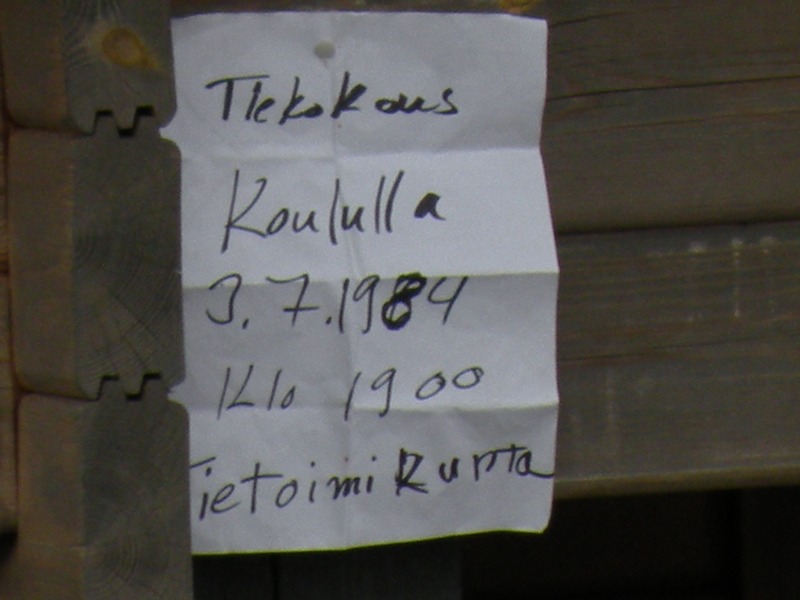 Tiekokous
Koululla
3.7.1984
Klo 19 00
Tietoimikunta